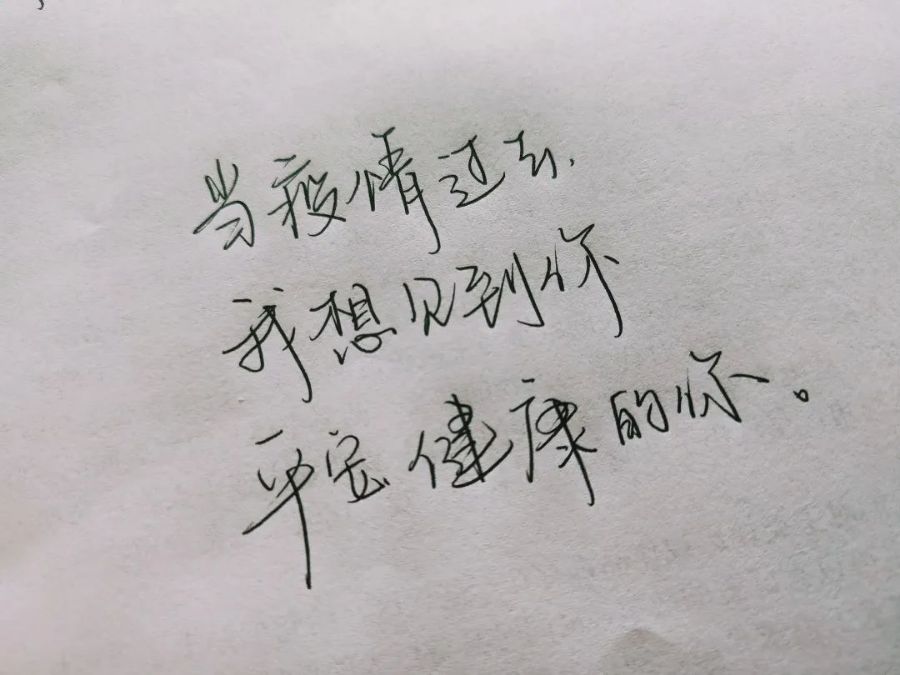 当疫情过去、
我想见到你
平安健康的你。